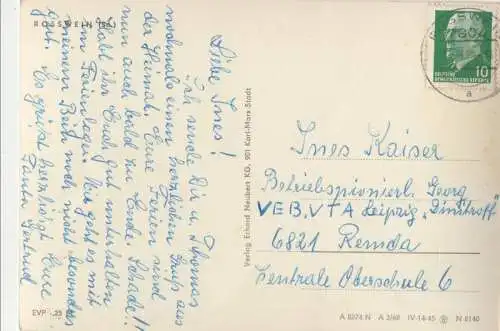 ROSSWEIN
Liebe Ines!
Ich sende Dir u. Thomas
nochmals einen herzlichen Gruß aus
der Heimat. Eure Ferien sind
nun auch bald zu Ende. Schade!!
habt ihr Euch gut unterhalten
im Ferienlager. Nur geht es mit
meinem Bein noch nicht besonders
gut. Es grüßt herzlichst Eure
Tante Gertrud
EVP -,25
Verlag Erhard Neubert KG, 901 Karl-Marx-Stadt
DEUTSCHE
DEMOKRATISCHE REPUBLIK
10
a
Ines Kaiser
Betriebspionierl. Georg
VEB, VTA Leipzig "Dimitroff"
6821 Remda
Zentrale Oberschule 6
A 5274 N A 3/68 IV-14-45 N 8140